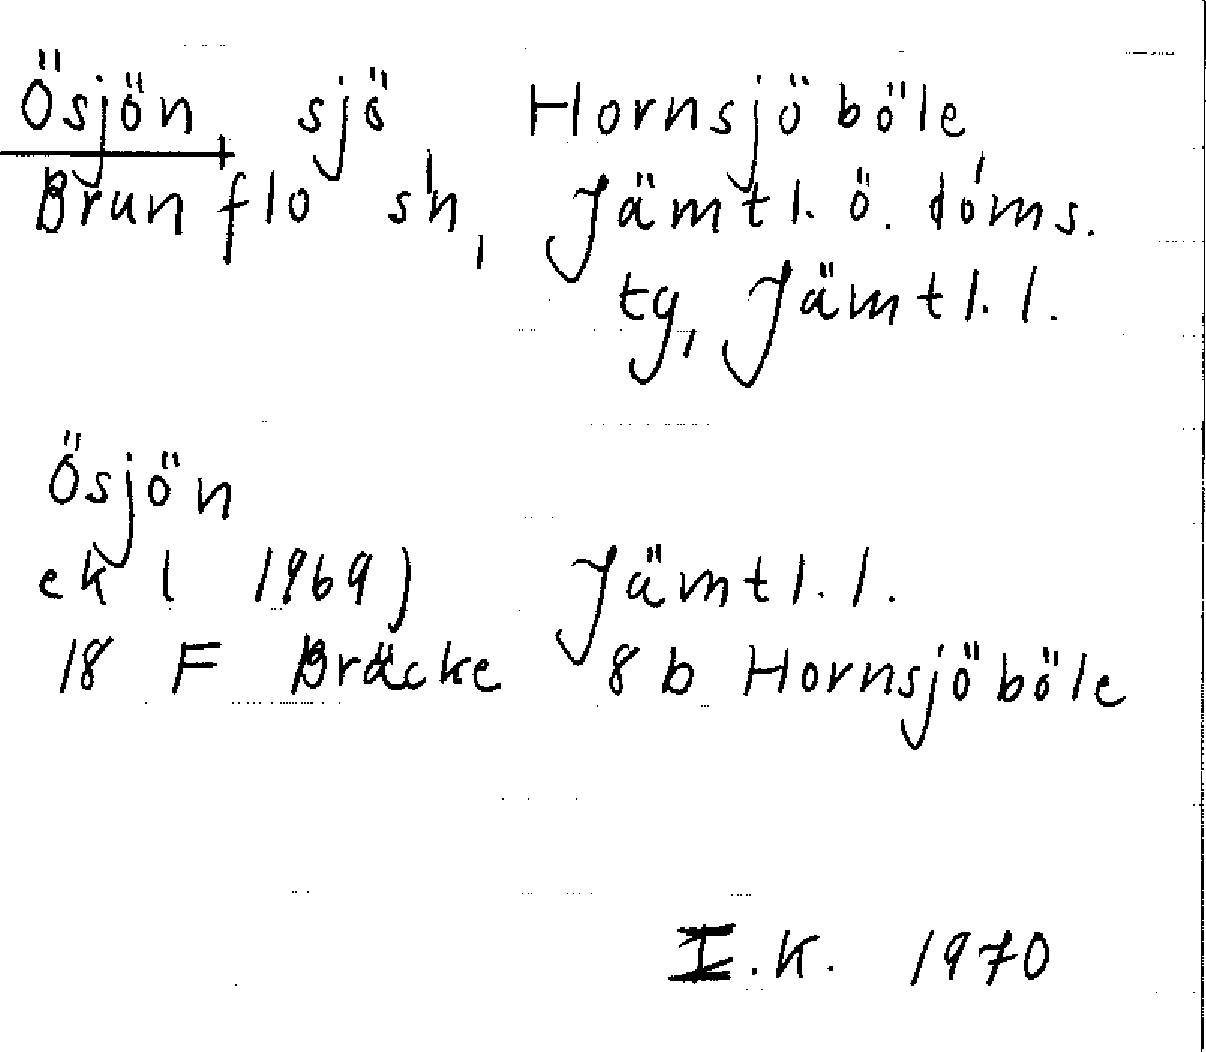 Ösjön, sjö Hornsjöböle,
Brunflo sn, Jämtl. ö. doms.
tg, Jämtl. l.
Ösjön
ek l 1969) Jämtl. l.
18 F Bräcke 8 b Hornsjöböle
I.K. 1970